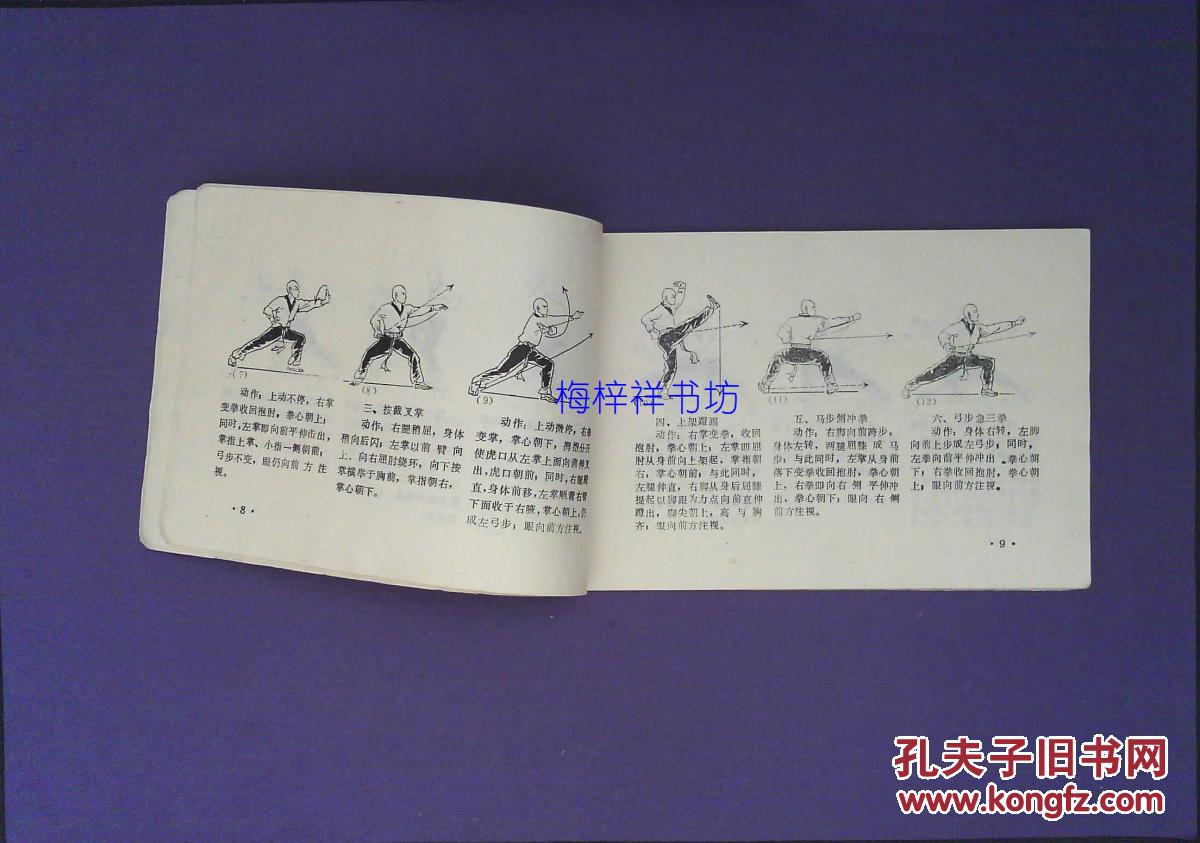 (7)
动作：上动不停，右掌
变拳收回抱肘，拳心朝上；
同时，左掌即向前平伸击出，
掌指上掌、小指一侧朝前；
弓步不变，眼仍向前方注
视。
·8·
(8)
三、按截叉掌
动作：右腿稍屈，身体
稍向后闪；左掌以前臂向
上、向右屈肘绕环，向下按
掌横举于胸前，掌指朝右，
掌心朝下。
(9)
动作：上动微停，右
变掌，掌心朝下，拇指分开
使虎口从左掌上面向前伸叉
出，虎口朝前；同时，右腿蹬
直，身体前移，左掌顺着右臂
下面收于右腋，掌心朝上，
成左弓步；眼向前方注视。
梅梓祥书坊
四、上架蹬踢
动作：右掌变拳，收回
抱肘，拳心朝上；左掌即屈
肘从身前向上架起，掌指朝
右，掌心朝前；与此同时，
左腿伸直，右脚从身后屈膝
提起以脚跟为力点向前直伸
蹬出，脚尖朝上，高与胸
齐；眼向前方注视。
(11)
五、马步侧冲拳
动作：右脚向前跨步，
身体左转，两腿屈膝成马
步；与此同时，左掌从身前
落下变拳收回抱肘，拳心朝
上，右拳即向右侧平伸冲
出，拳心朝下；眼向右侧
前方注视。
(12)
六、弓步急三拳
动作：身体右转，左脚
向前上步成左弓步；同时，
左拳向前平伸冲出，拳心朝
下；右拳收回抱肘，拳心朝
上；眼向前方注视。
·9·
孔夫子旧书网
www.kongfz.com